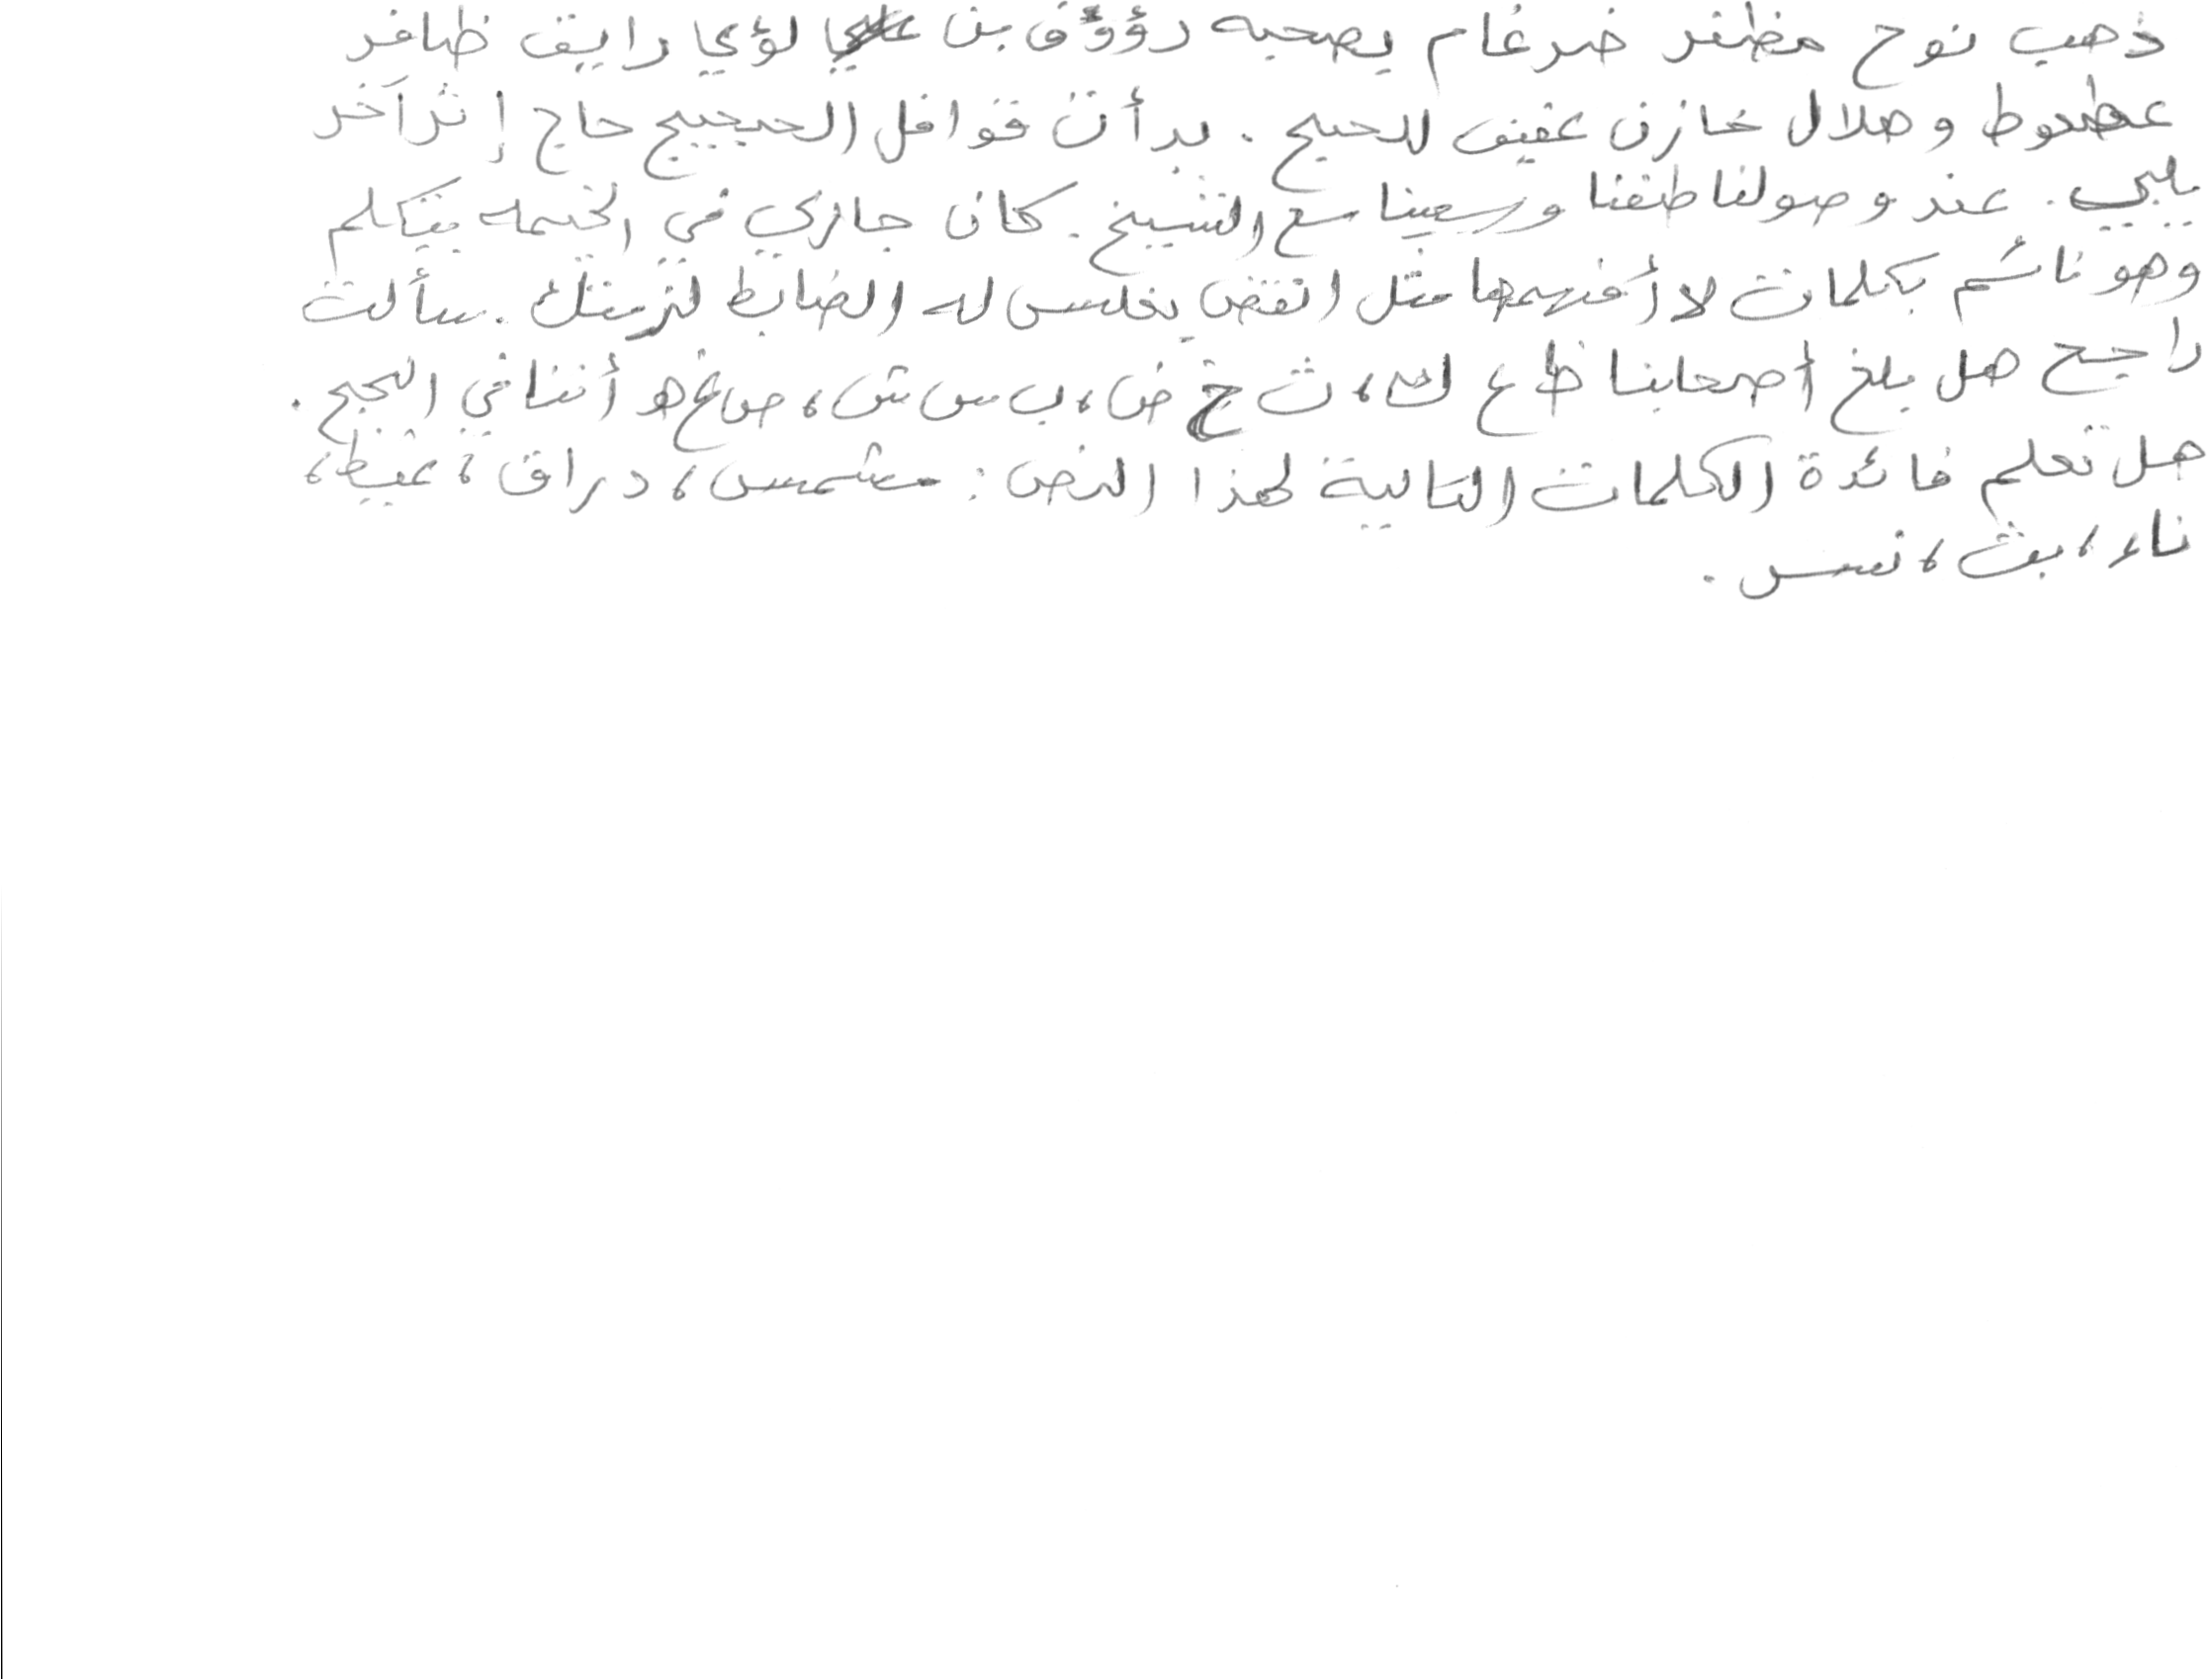 ذهب نوح مظفر ضرغام يصحبه رؤوف بن لؤي رايق ظافر
عطعوط وهلال خازن عفيف للحج. بدأت قوافل الحجيج حاج إثر آخر
يلبي. عند وصولنا طفنا وسعينا مع الشيخ. كان جاري في الخيمه يتكلم
وهو نائم بكلمات لا أفهمها مثل انقض يغلس له الضابط لزمتك. سألت
راجح هل بلغ أصحابنا ظ ع ك، ث خ ض، ب س ش، ص غ هو أثنائي الحج.
هل تعلم فائدة الكلمات التالية لهذا النص: مشمس، دراق، غيظ،
ناء، بث، نسس.